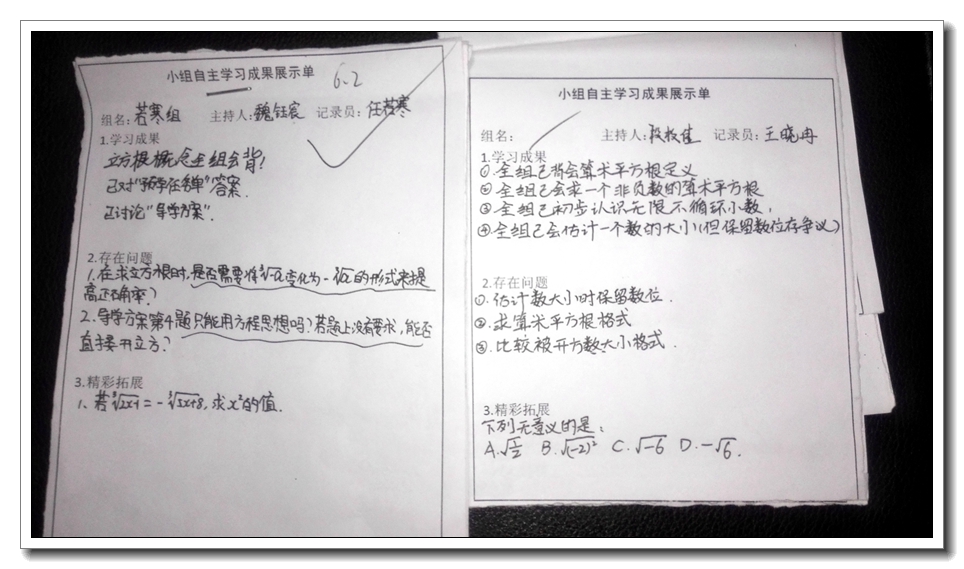 小组自主学习成果展示单
6.2
组名:若寒组 主持人:魏钰宸 记录员:任若寒
1.学习成果
立方根概念全组会背!
已对“预学任务单”答案.
已讨论“导学方案”.
2.存在问题
1.在求立方根时,是否需要将∛-a变化为-∛a的形式来提
高正确率?
2.导学方案第4题只能用方程思想吗?若题上没有要求,能否
直接开立方?
3.精彩拓展
1、若∛2x-1=-∛5x+8,求x²的值.
小组自主学习成果展示单
组名: 主持人:段 佳 记录员:王晓冉
1.学习成果
①.全组已背会算术平方根定义
②全组已会求一个非负数的算术平方根
③全组已初步认识无限不循环小数.
④全组已会估计一个数的大小(但保留数位存争议)
2.存在问题
①.估计数大小时保留数位.
②.求算术平方根格式
③.比较被开方数大小格式.
3.精彩拓展
下列无意义的是:
A.√1/2 B.√(-2)² C.√-6 D.-√6.